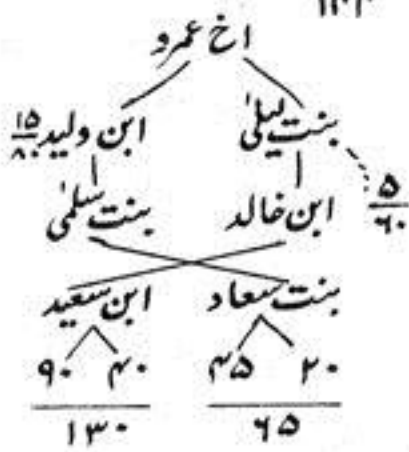 اخ عمرو
بنت لیلیٰ ابن ولید ۱۵/۸۰
۵/۶۰ ابن خالد بنت سلمیٰ
بنت سعاد ابن سعید
۲۰ ۴۵ ۴۰ ۹۰
۶۵ ۱۳۰